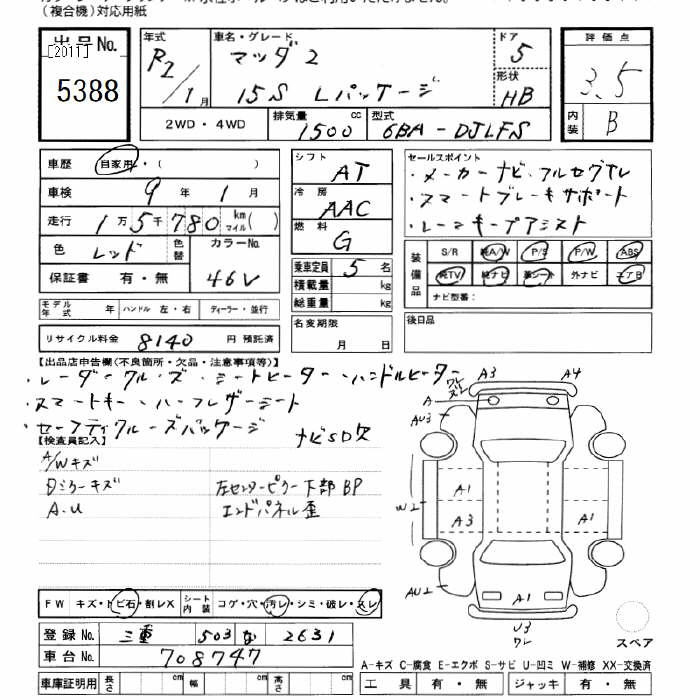 (複合機)対応用紙
出品No.
[2011]
5388
年式
R2/1月
車名・グレード
マツダ2
15S Lパッケージ
ドア
5
形状
HB
評価点
3.5
内装
B
2WD・4WD
排気量
1500cc
型式
6BA-DJLFS
車歴 自家用・( )
車検 9年 1月
走行 1万5千780 km マイル( )
色 レッド 色替
カラーNo. 46V
保証書 有・無
モデル年式 年 ハンドル 左・右 ディーラー・並行
リサイクル料金 8140 円 預託済
シフト AT
冷房 AAC
燃料 G
乗車定員 5名
積載量 kg
総重量 kg
名変期限 月 日
セールスポイント
・メーカーナビ・フルセグTV
・スマートブレーキサポート
・レーンキープアシスト
装備品
S/R 純A/W P/S P/W ABS
純TV 純ナビ 革シート 外ナビ エアB
ナビ型番:
後日品
【出品店申告欄(不良箇所・欠品・注意事項等)】
・レーダークルーズ・シートヒーター・ハンドルヒーター
・スマートキー・ハーフレザーシート
・セーフティクルーズパッケージ
ナビSD欠
【検査員記入】
A/Wキズ
A.U
左センターピラー下部BP
エンドパネル歪
A3
A4
A
AU3
A1
A3
A1
A1
U3
FW キズ・トビ石・割レX
シート内装 コゲ・穴・汚レ・シミ・破レ・スレ
登録No. 三重 503 な 2631
車台No. 708747
車庫証明用 長さ cm 幅 cm 高さ cm
スペア
A-キズ C-腐食 E-エクボ S-サビ U-凹ミ W-補修 XX-交換済
工具 有・無 ジャッキ 有・無